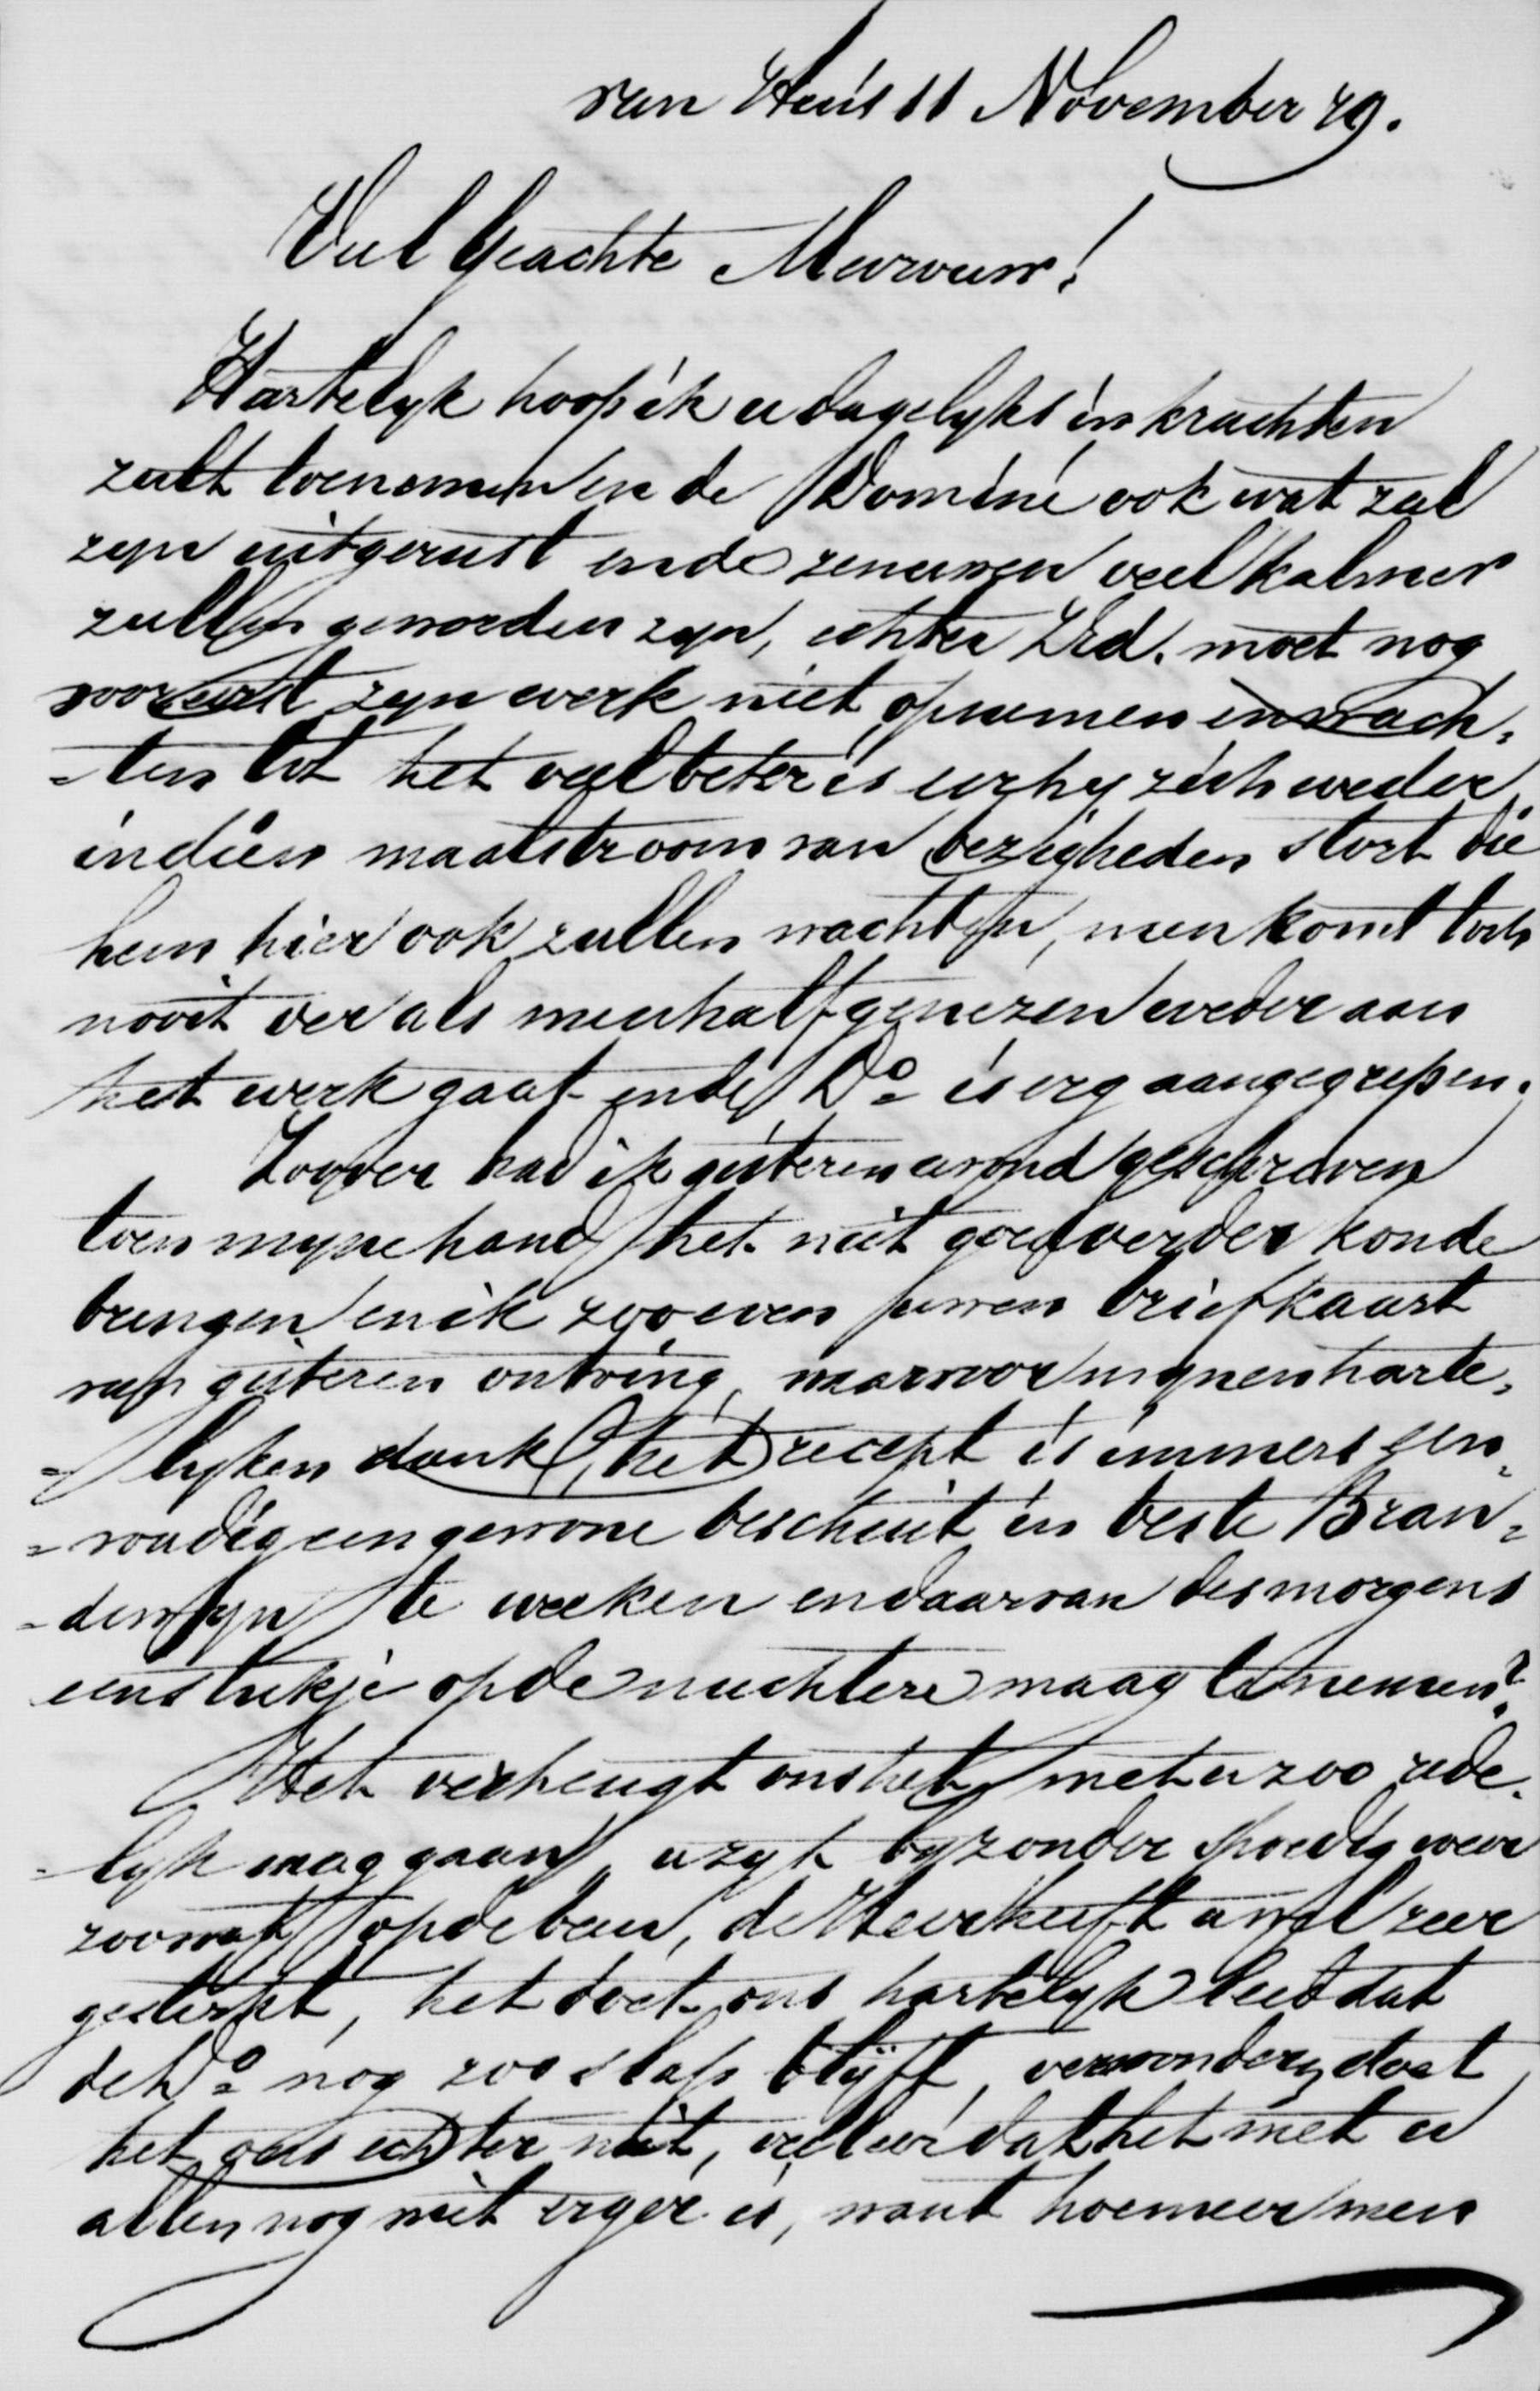 van Huis 11 November 79.
Veel Geachte Mevrouw!
Hartelyk hoop ik u dagelyks in krachten
zult toenemen en de Dominé ook wat zal
zyn uitgerust en de zenuwen veel kalmer
zullen geworden zyn, echter ZEd. moet nog
vooreerst zyn werk niet opnemen en wach,
=ten tot het veel beter is eer hy zich weder
in dien maalstroom van bezigheden stort die
hem hier ook zullen wachten, men komt toch
nooit ver als men half genezen weder aan
het werk gaat en de Do= is erg aangegrepen.
Zoover had ik gisteren avond geschreven
toen myne hand het niet goed verder konde
brengen en ik zoo even uwen briefkaart
van gisteren ontving, waarvoor mynen harte,
=lyken dank, het recept is immers een,
=voudig een gewone beschuit in beste Bran,
=dewyn te weeken en daarvan des morgens
een stukje op de nuchtere maag te nemen?
Het verheugt ons het met u zoo rede,
=lyk mag gaan, u zyt byzonder spoedig weer
zoowat op de been, de Heer heeft u wel zeer
gesterkt, het doet ons hartelyk leed dat
de Do= nog zoo slap blijft, verwonderen doet
het ons echter niet, veeleer dat het met u
allen nog niet erger is, want hoe meer men